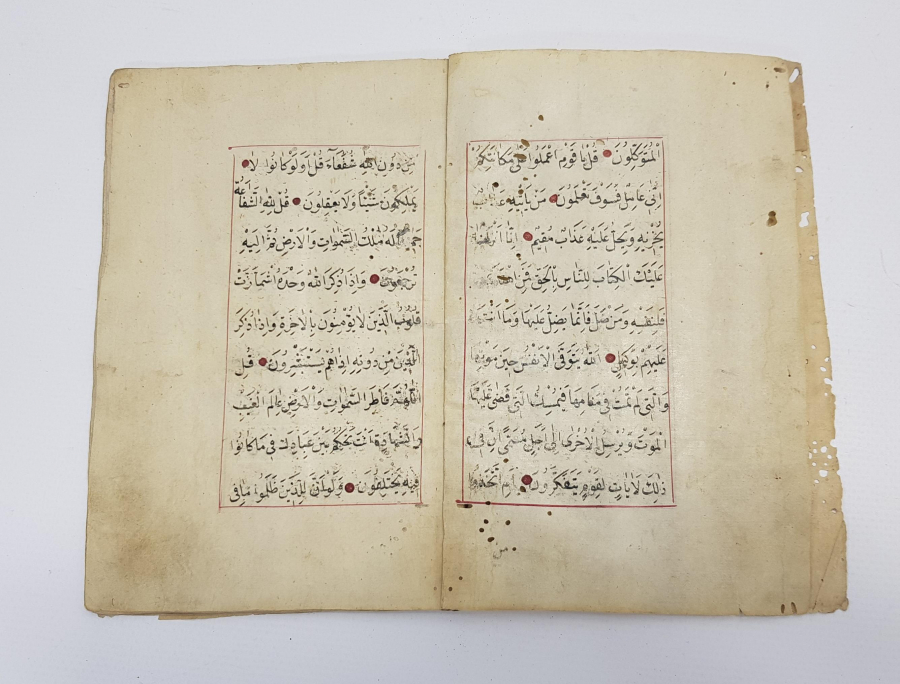 الْمُتَوَكِّلُونَ قُلْ يَا قَوْمِ اعْمَلُوا عَلَى مَكَانَتِكُمْ
اِنّٖى عَامِلٌ فَسَوْفَ تَعْلَمُونَ مَنْ يَاْتٖيهِ عَذَابٌ
يُخْزٖيهِ وَيَحِلُّ عَلَيْهِ عَذَابٌ مُقٖيمٌ اِنَّا اَنْزَلْنَا
عَلَيْكَ الْكِتَابَ لِلنَّاسِ بِالْحَقِّ فَمَنِ اهْتَدٰى
فَلِنَفْسِهِ وَمَنْ ضَلَّ فَاِنَّمَا يَضِلُّ عَلَيْهَا وَمَا اَنْتَ
عَلَيْهِمْ بِوَكٖيلٍ اَللّٰهُ يَتَوَفَّى الْاَنْفُسَ حٖينَ مَوْتِهَا
وَالَّتٖى لَمْ تَمُتْ فٖى مَنَامِهَا فَيُمْسِكُ الَّتٖى قَضٰى عَلَيْهَا
الْمَوْتَ وَيُرْسِلُ الْاُخْرٰى اِلٰى اَجَلٍ مُسَمًّى اِنَّ فٖى
ذٰلِكَ لَاٰيَاتٍ لِقَوْمٍ يَتَفَكَّرُونَ اَمِ اتَّخَذُوا
مِنْ
مِنْ دُونِ اللّٰهِ شُفَعَاءَ قُلْ اَوَلَوْ كَانُوا لَا
يَمْلِكُونَ شَيْئًا وَلَا يَعْقِلُونَ قُلْ لِلّٰهِ الشَّفَاعَةُ
جَمٖيعًا لَهُ مُلْكُ السَّمٰوَاتِ وَالْاَرْضِ ثُمَّ اِلَيْهِ
تُرْجَعُونَ وَاِذَا ذُكِرَ اللّٰهُ وَحْدَهُ اشْمَاَزَّتْ
قُلُوبُ الَّذٖينَ لَا يُؤْمِنُونَ بِالْاٰخِرَةِ وَاِذَا ذُكِرَ
الَّذٖينَ مِنْ دُونِهِ اِذَا هُمْ يَسْتَبْشِرُونَ قُلِ
اللّٰهُمَّ فَاطِرَ السَّمٰوَاتِ وَالْاَرْضِ عَالِمَ الْغَيْبِ
وَالشَّهَادَةِ اَنْتَ تَحْكُمُ بَيْنَ عِبَادِكَ فٖى مَا كَانُوا
فٖيهِ يَخْتَلِفُونَ وَلَوْ اَنَّ لِلَّذٖينَ ظَلَمُوا مَا فِى